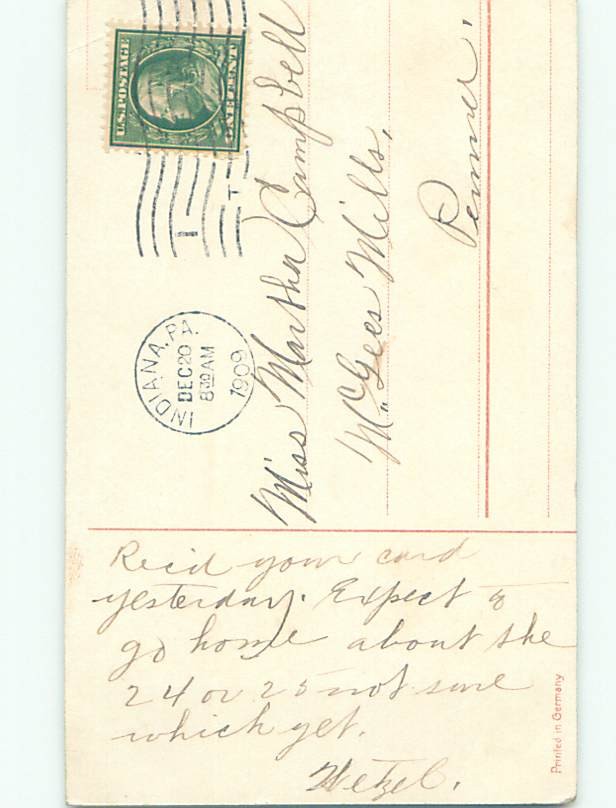 U.S. POSTAGE
ONE CENT
INDIANA, PA.
DEC 20
8 30 AM
1909
Miss Martha Campbell
McGees Mills,
Penna.
Rec'd your card
yesterday. Expect to
go home about the
24 or 25 not sure
which yet.
Wetzel.
Printed in Germany